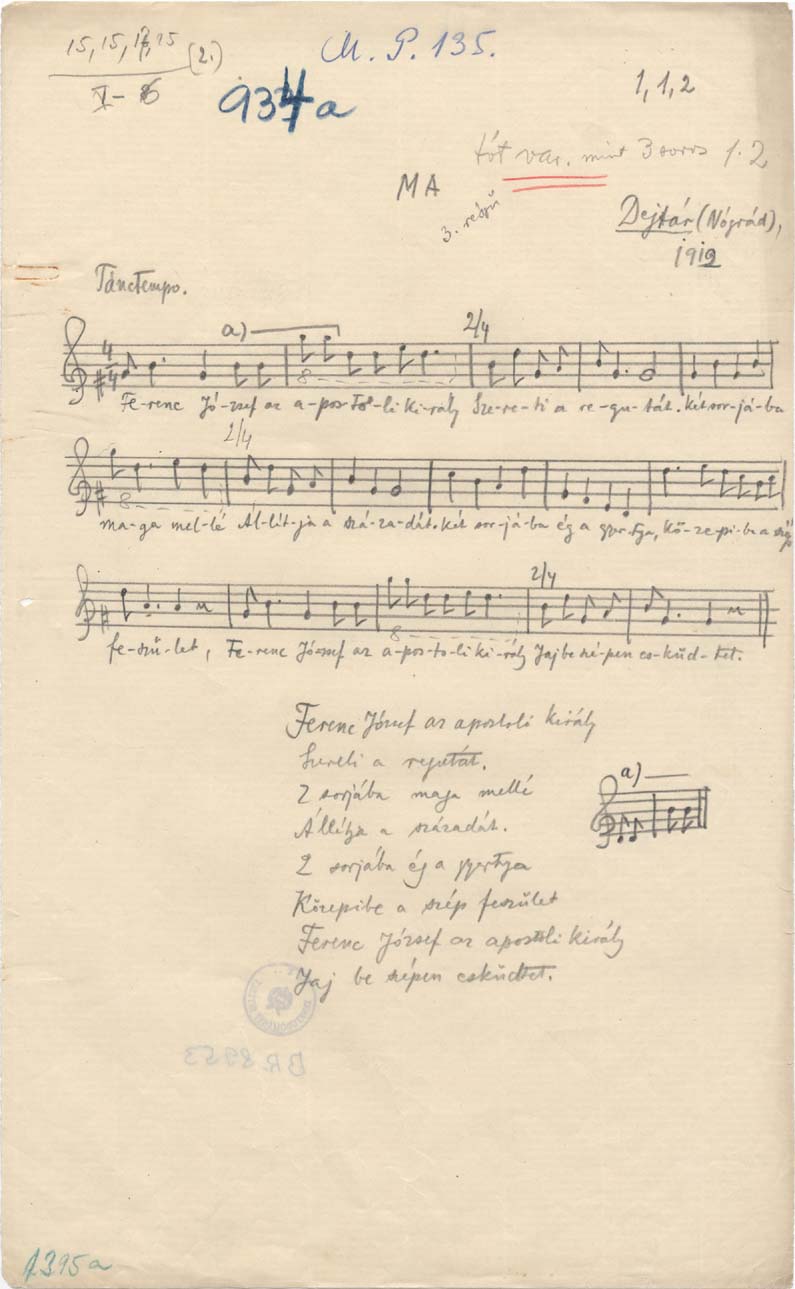 15, 15, 17, 15 (2.)
M. P. 135.
934a
1, 1, 2
tót var. mint 3 soros 1. 2
MA
3. részű
Dejtár (Nógrád),
1912
Tánctempo.
a)
2/4
4/4
8
Fe-renc Jó-zsef az a-pos-to-li ki-rály Sze-re-ti a re-gu-tát. két sor-já-ba
2/4
8
ma-ga mel-lé Ál-lít-ja a szá-za-dát. Két sor-já-ba ég a gyertya, Kö-ze-pi-be a szép
2/4
8
fe-szü-let, Fe-renc József az a-pos-to-li ki-rály Jaj be szé-pen es-küd-tet.
Ferenc József az apostoli király
Szereti a regutát.
2 sorjába maga mellé
Állítja a századát.
2 sorjába ég a gyertya
Közepibe a szép feszület
Ferenc József az apostoli király
Jaj be szépen esküdtet.
a)
BR 8953
1395a